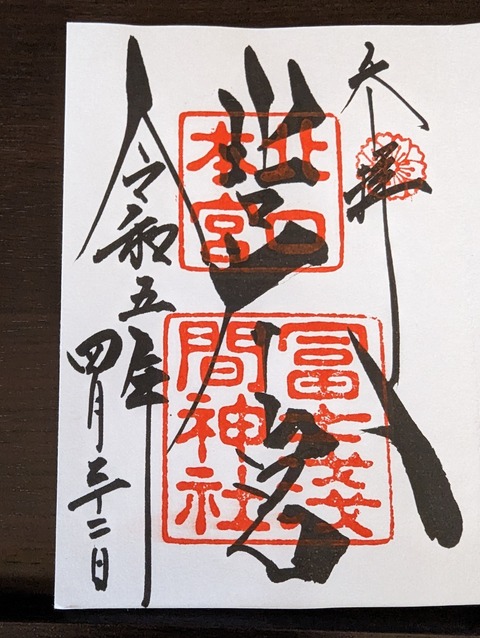 奉拝
北口
本宮
冨士浅
間神社
令和五年
四月二十二日